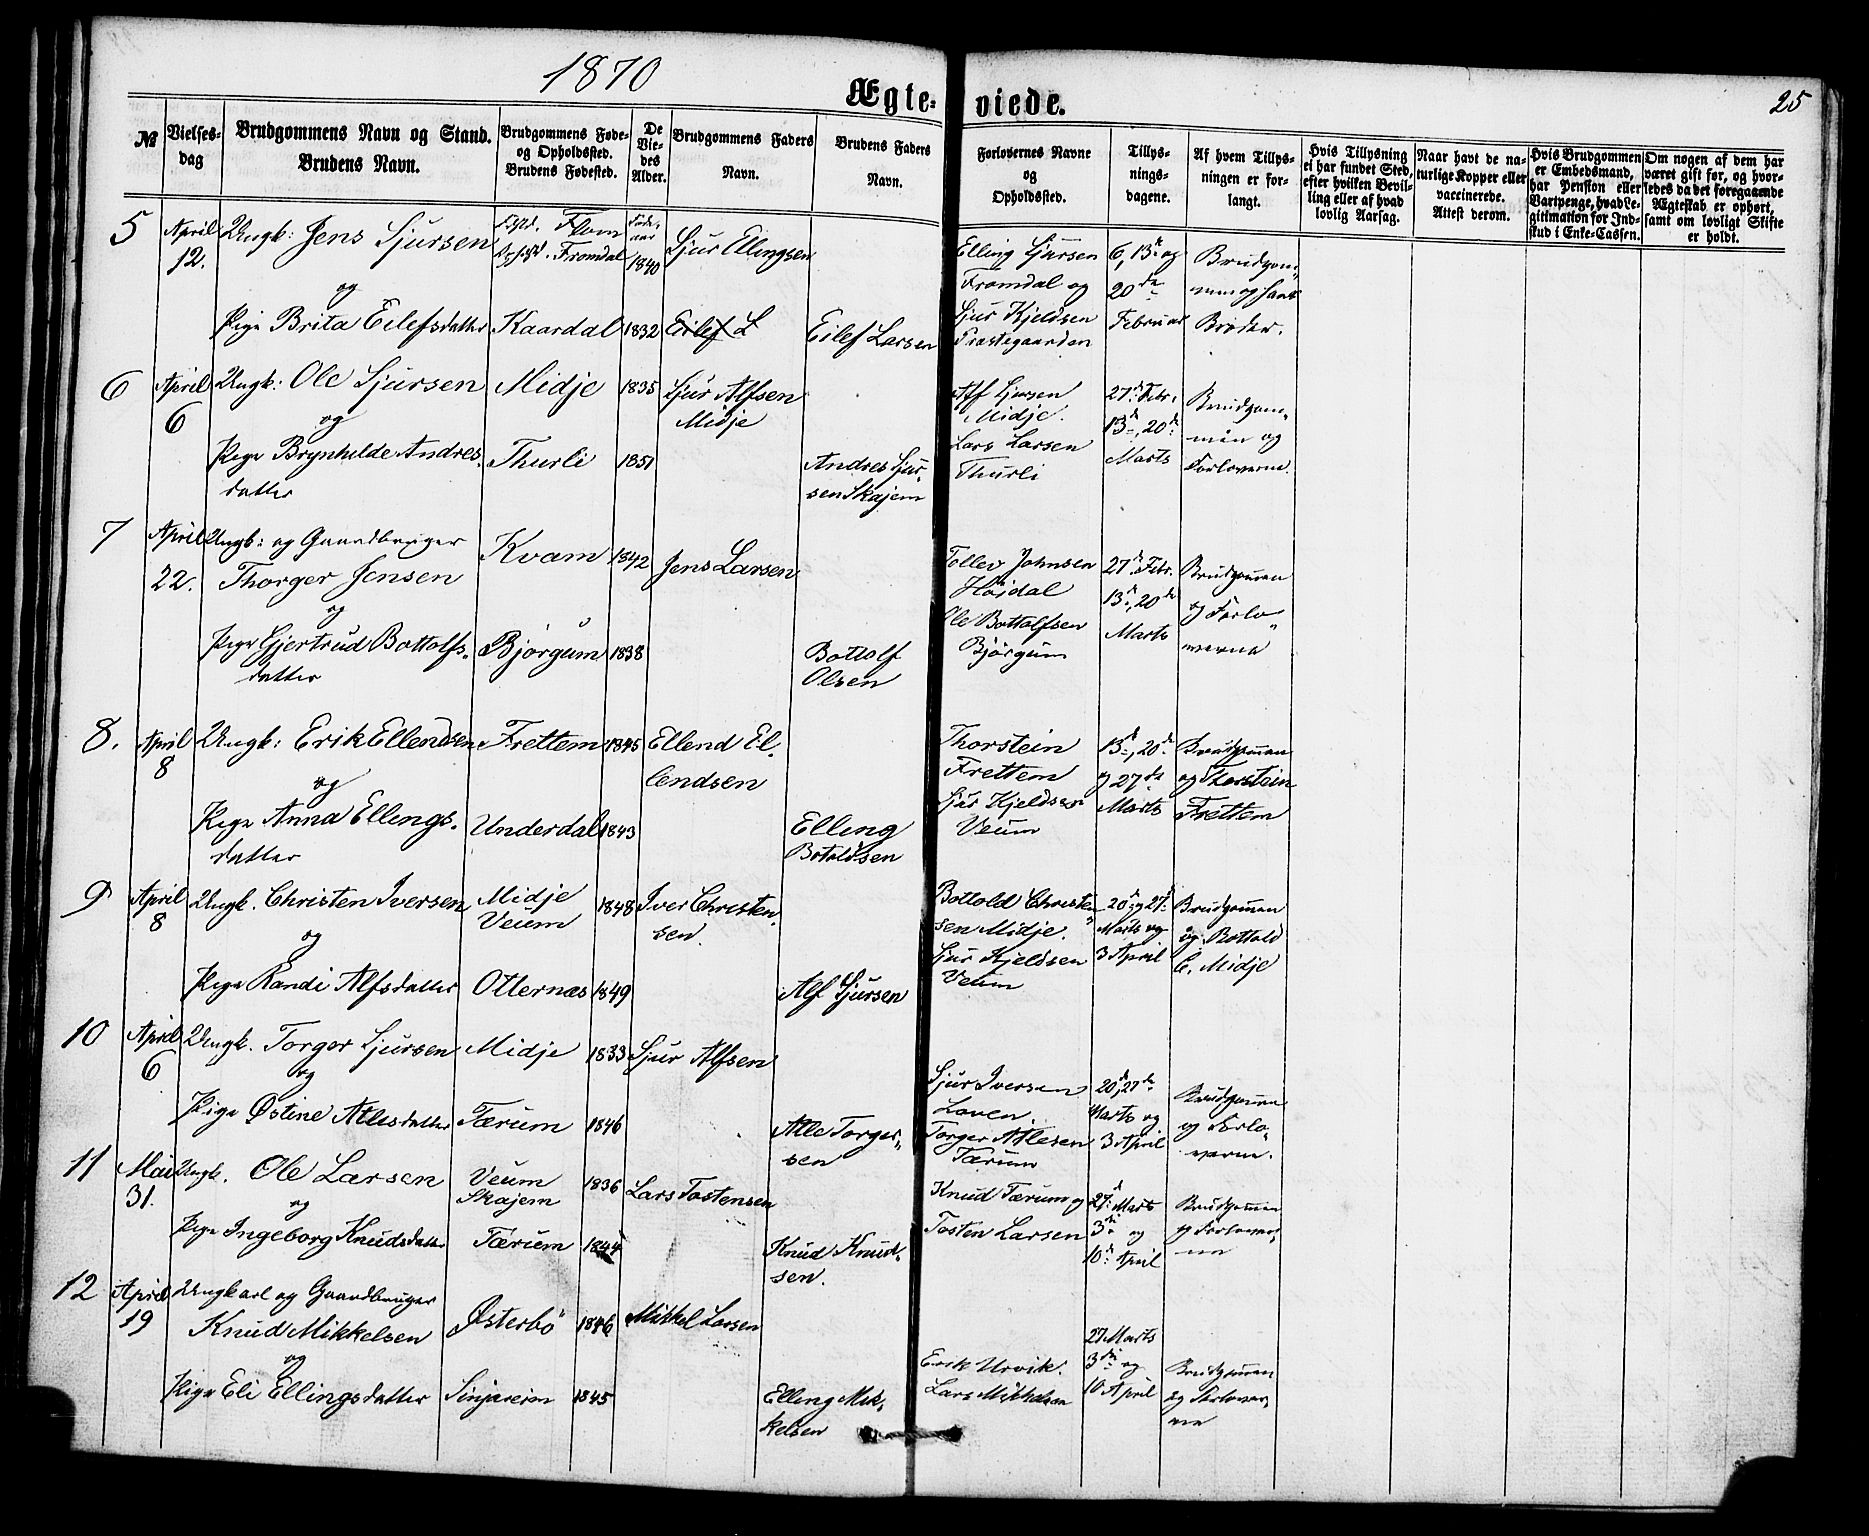 1870
Ægteviede.
25
№
Vielsesdag
Brudgommens Navn og Stand.
Brudens Navn.
Brudgommens Føde- og Opholdssted.
Brudens Fødested.
De Viedes Alder.
Brudgommens Faders Navn.
Brudens Faders Navn.
Forlovernes Navne og Opholdssted.
Tillysningsdagene.
Af hvem Tillysningen er forlangt.
Hvis Tillysning ei har fundet Sted, efter hvilken Bevilling eller af hvad lovlig Aarsag.
Naar havt de naturlige Kopper eller vaccinerede. Attest derom.
Hvis Brudgommen er Embedsmand, har Pension eller Vartpenge, hvad Legitimation for Indskud i Enke-Cassen.
Om nogen af dem har været gift før, og hvorledes da det foregaaende Ægteskab er ophørt, samt om lovligt Skifte er holdt.
5
April 12.
Ungk: Jens Sjursen
Flom
Fromdal
1840
Sjur Ellingsen
og
Pige Brita Eilefsdatter
Kaardal
1832
Eilef L
Eilef Larsen
Elling Sjursen
Fromdal og
Sjur Kjeldsen
Præstegaarden
6, 13de og
20de
Februar
Brudgom-
men og hans
Broder.
6
April 6
Ungk: Ole Sjursen
Midje
1835
Sjur Alfsen
Midje
og
Pige Brynhilde Andres-
datter
Thurli
1851
Andres Sjur-
sen Skajem
Alf Sjursen
Midje.
Lars Larsen
Thurli
27de Febr.
13de, 20de
Marts
Brudgom-
men og
Forloverne.
7
April 22.
Ungk: og Gaardbruger
Thorger Jensen
Kvam
1842
Jens Larsen
og
Pige Gjertrud Bottolfs-
datter
Bjørgum
1838
Bottolf
Olsen
Tollev Johnsen
Høidal
Ole Bottolfsen
Bjørgum
27de Febr.
13de, 20de
Marts
Brudgommen
og Forlo-
verne
8.
April 8
Ungk: Erik Ellendsen
Frettem
1845
Ellend El-
lendsen
og
Pige Anna Ellings-
datter
Underdal
1843
Elling
Botoldsen
Thorstein
Frettem
Sjur Kjeldsen
Veum
13de, 20de
og 27de
Marts
Brudgommen
og Thorstein
Frettem
9
April 8
Ungk. Christen Iversen
Midje
Veum
1848
Iver Christen-
sen.
og
Pige Randi Alfsdatter
Otternæs
1849
Alf Sjursen
Bottold Christen-
sen Midje.
Sjur Kjeldsen
Veum
20de og 27de
Marts og
3 April
Brudgommen
og Bottold
C. Midje
10
April 6
Ungk. Torger Sjursen
Midje
1833
Sjur Alfsen
og
Pige Østine Atlesdatter
Færum
1846
Atle Torger-
sen
Sjur Iversen
Loven.
Torger Atlesen
Færum
20de, 27de
Marts og
3 April
Brudgommen
og Forlo-
verne.
11
Mai 31.
Ungk. Ole Larsen
Veum
Skajem
1836
Lars Tostensen
og
Pige Ingeborg Knudsdatter
Færum
1844
Knud Knud-
sen.
Knud Færum og
Tosten Larsen
27de Marts
3de og
10de April
Brudgommen
og Forlover-
ne
12
April 19
Ungkarl og Gaardbruger
Knud Mikkelsen
Østerbø
1846
Mikkel Larsen
og
Pige Eli Ellingsdatter
Sinjareim
1845
Elling Mik-
kelsen
Erik Urvik.
Lars Mikkelsen
27 Marts
3die og
10 April
Brudgommen
og Forlover-
ne